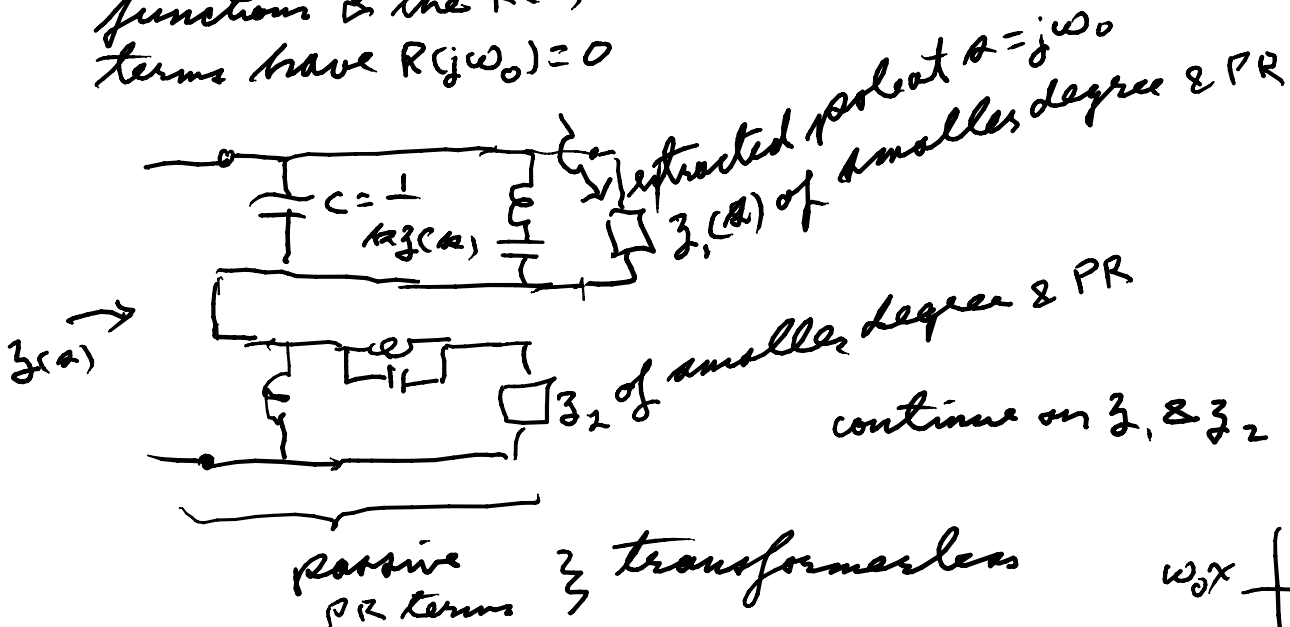 functions & the
terms have R(jω₀)=0
extracted pole at s=jω₀
z₁(s) of smaller degree & PR
C = 1
kz(k)
z(s)
z₂ of smaller degree & PR
continue on z₁ & z₂
passive } transformerless
PR terms
ω₀x